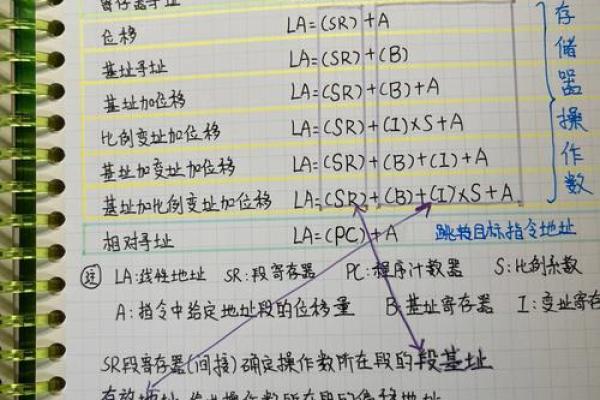 寄存器寻址
位移 LA=(SR)+A
基址寻址 LA=(SR)+(B)
基址加位移 LA=(SR)+(B)+A
比例变址加位移 LA=(SR)+(I)×S+A
基址加变址加位移 LA=(SR)+(B)+(I)+A
基址加比例变址加位移 LA=(SR)+(B)+(I)×S+A
相对寻址 LA=(PC)+A 跳转目标指令地址
存储器操作数
注 LA:线性地址 SR:段寄存器 PC:程序计数器 S:比例系数
A:指令中给定地址段的位移量 B:基址寄存器 I:变址寄存
SR段寄存器(间接)确定操作数所在段的段基址
有效地址 操作数所在段的偏移地址